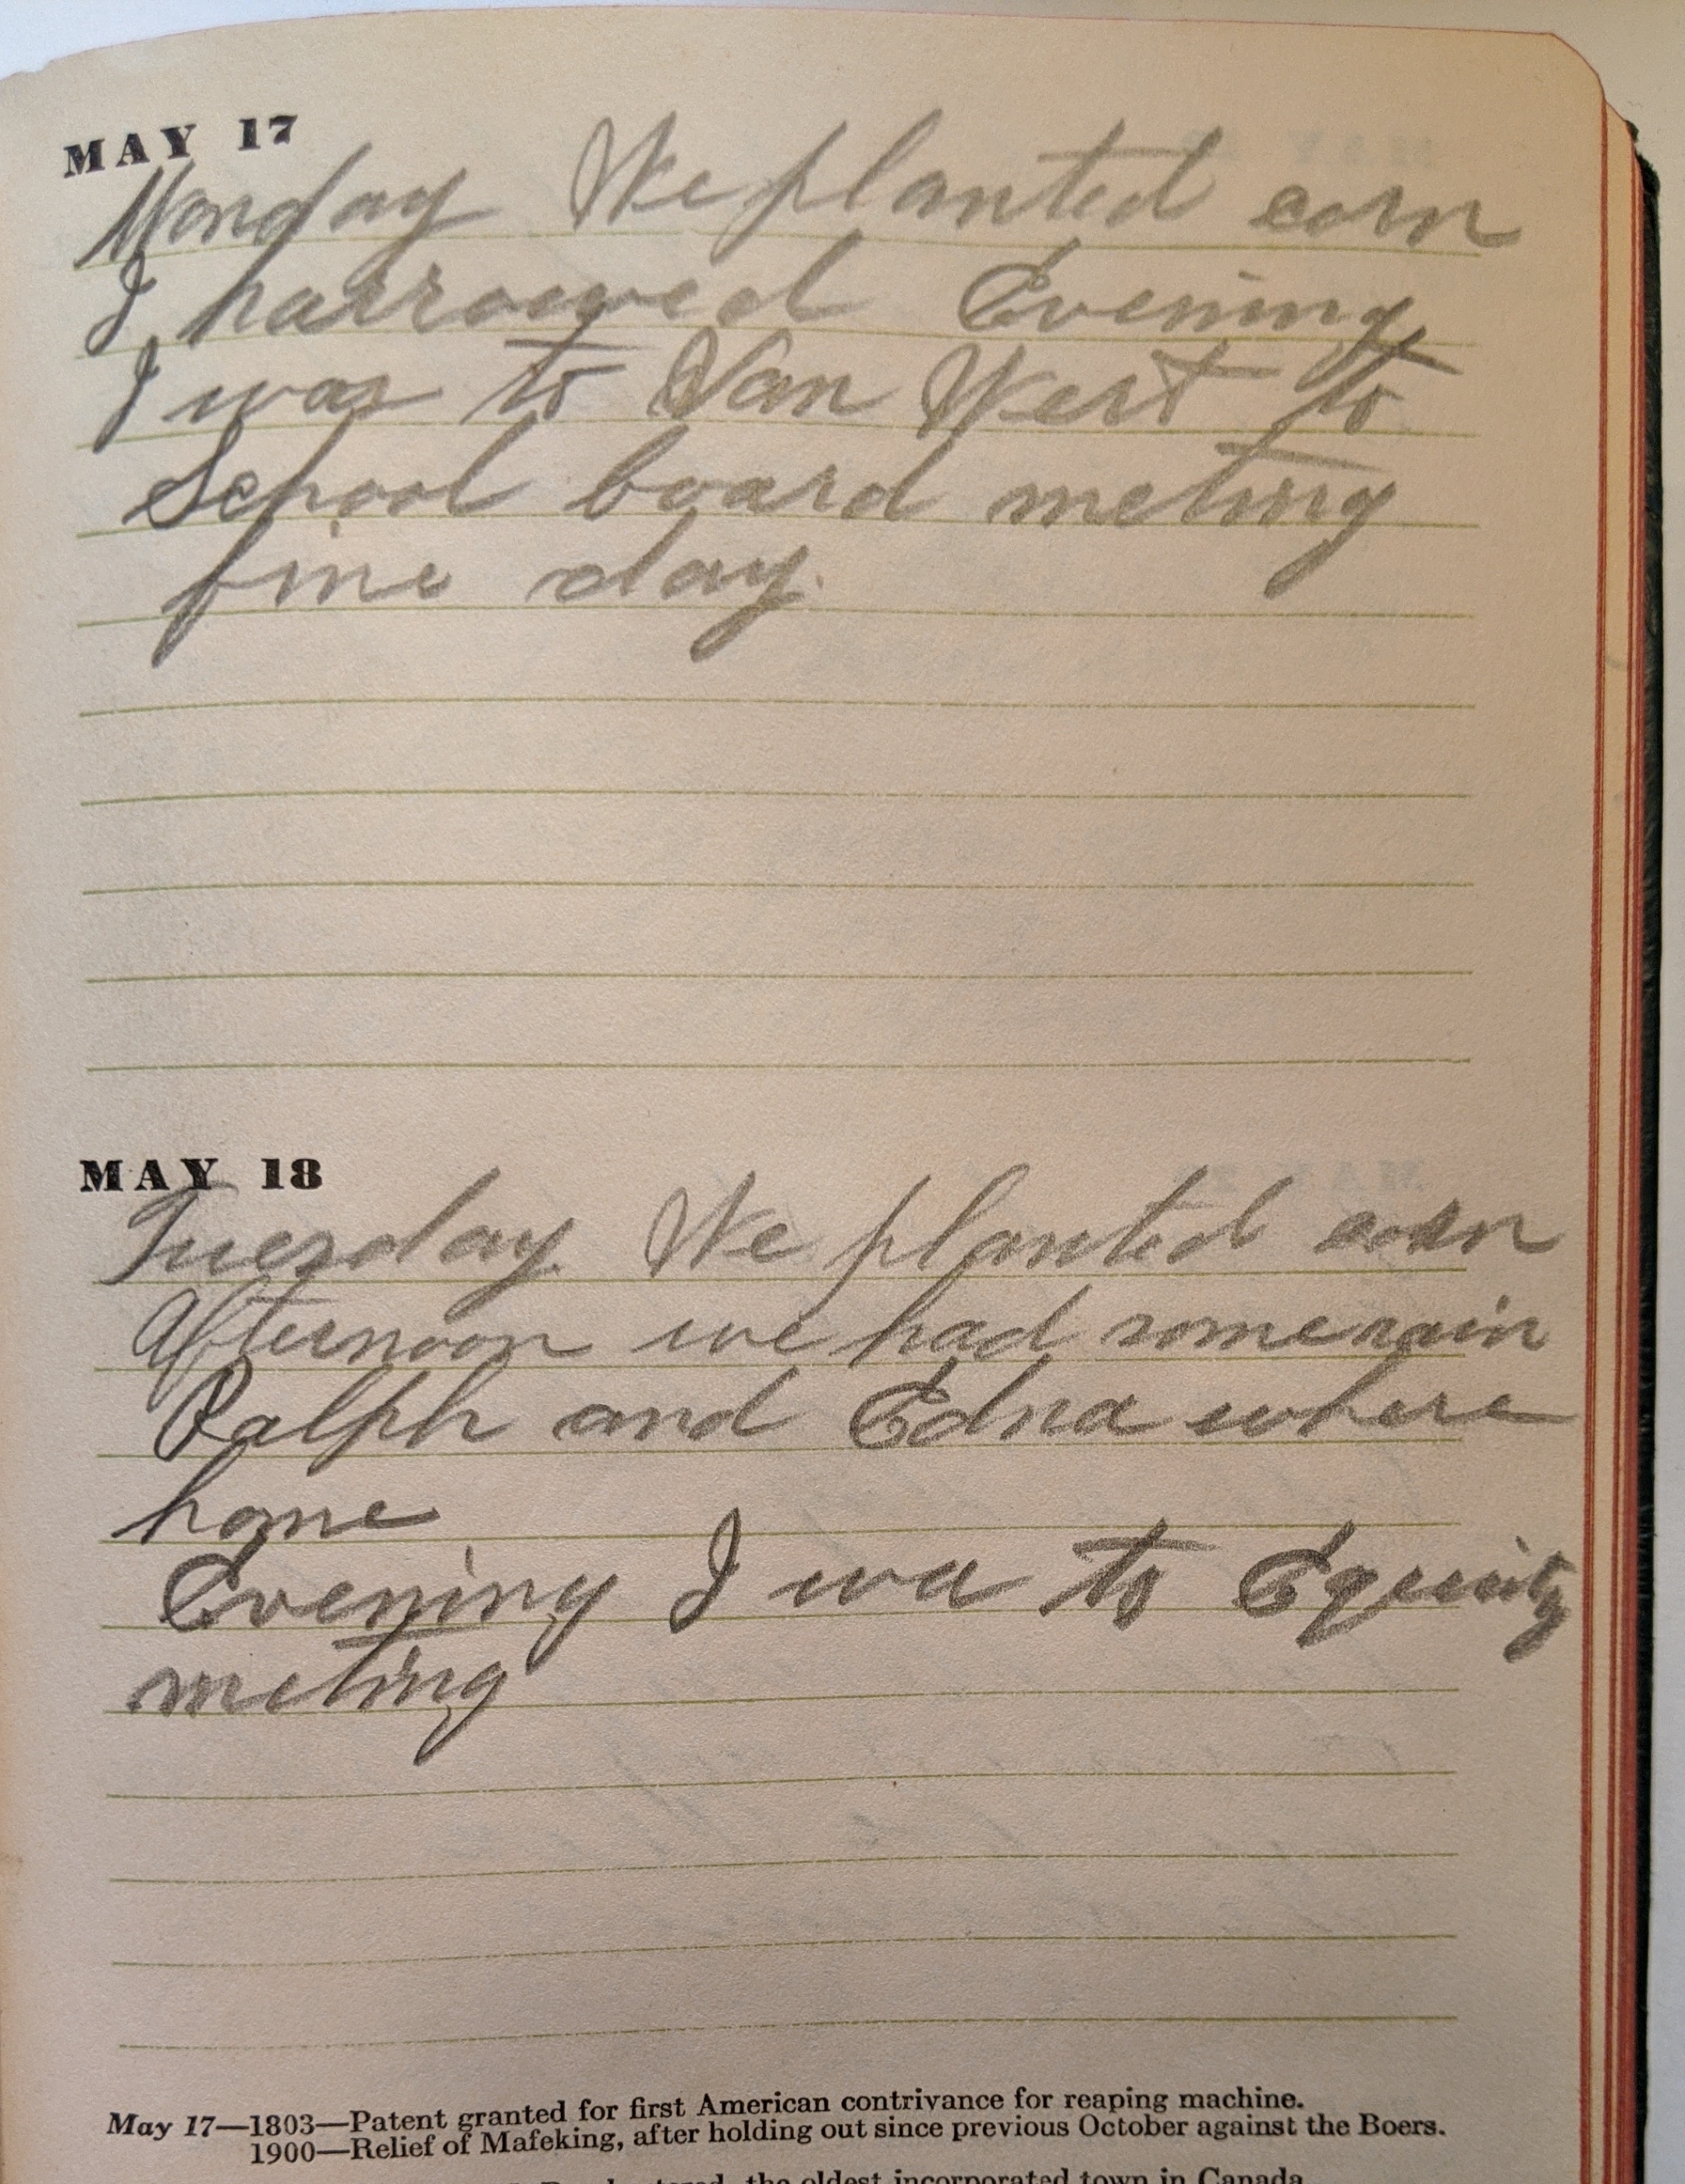 MAY 17
Monday We planted corn
I harrowed Evening
I was to Van Wert to
School board meting
fine day.
MAY 18
Tuesday. We planted corn
Afternoon we had some rain
Ralph and Edna where
home
Evening I wa to Equity
meting
May 17—1803—Patent granted for first American contrivance for reaping machine.
1900—Relief of Mafeking, after holding out since previous October against the Boers.
the oldest incorporated town in Canada